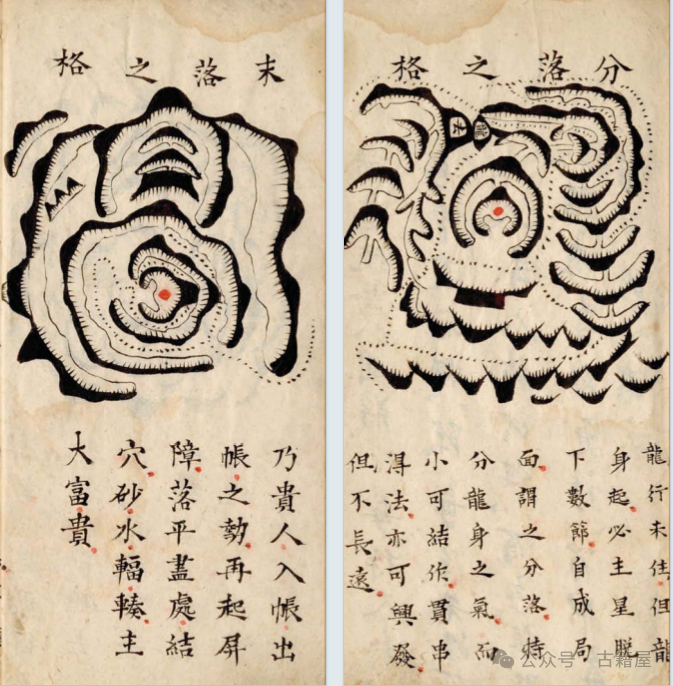 分落之格
龍行未住但龍
身起必主星脫
下數節自成局
面謂之分落特
分龍身之氣而
小可結作貫串
淂法亦可興發
但不長遠
末落之格
乃貴人入帳出
帳之勢再起屏
障落平盡處結
穴砂水輻輳主
大富貴
公众号 · 古籍屋